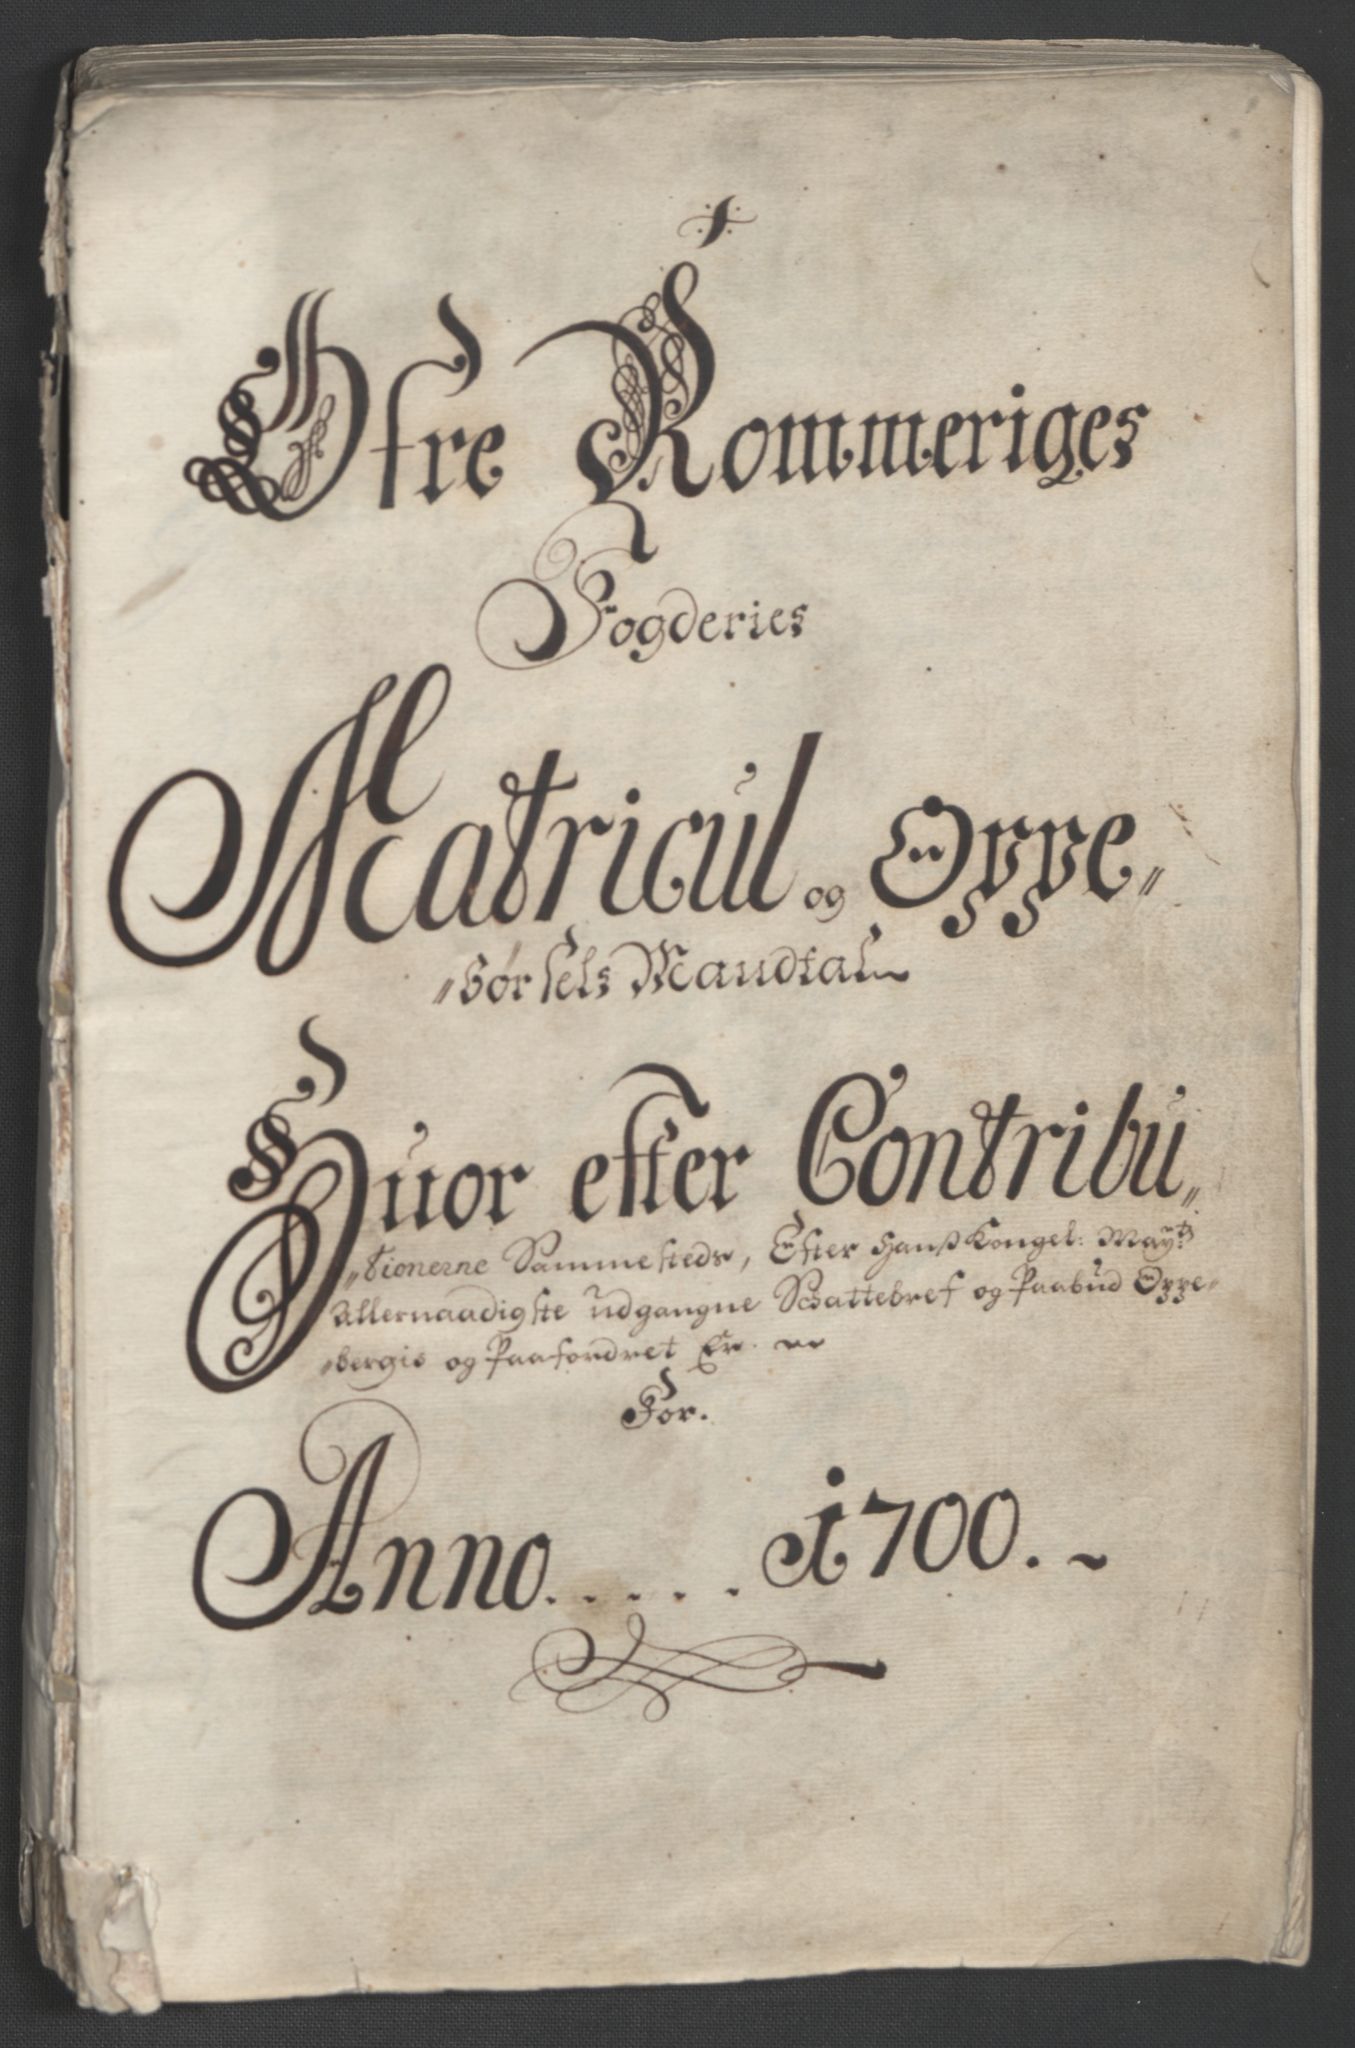 Ofre Rommeriges
Fogderies
Matricul og Oppe„
„Børsels Mandtal
Huor efter Contribu„
„tionerne Sammesteds, Efter Hanß Kongel: Mayts
Allernaadigste udgangne Schattebref og Paabud Oppe„
„bergis og Paafordret Er.
For.
Anno. . . . . 1700. ~